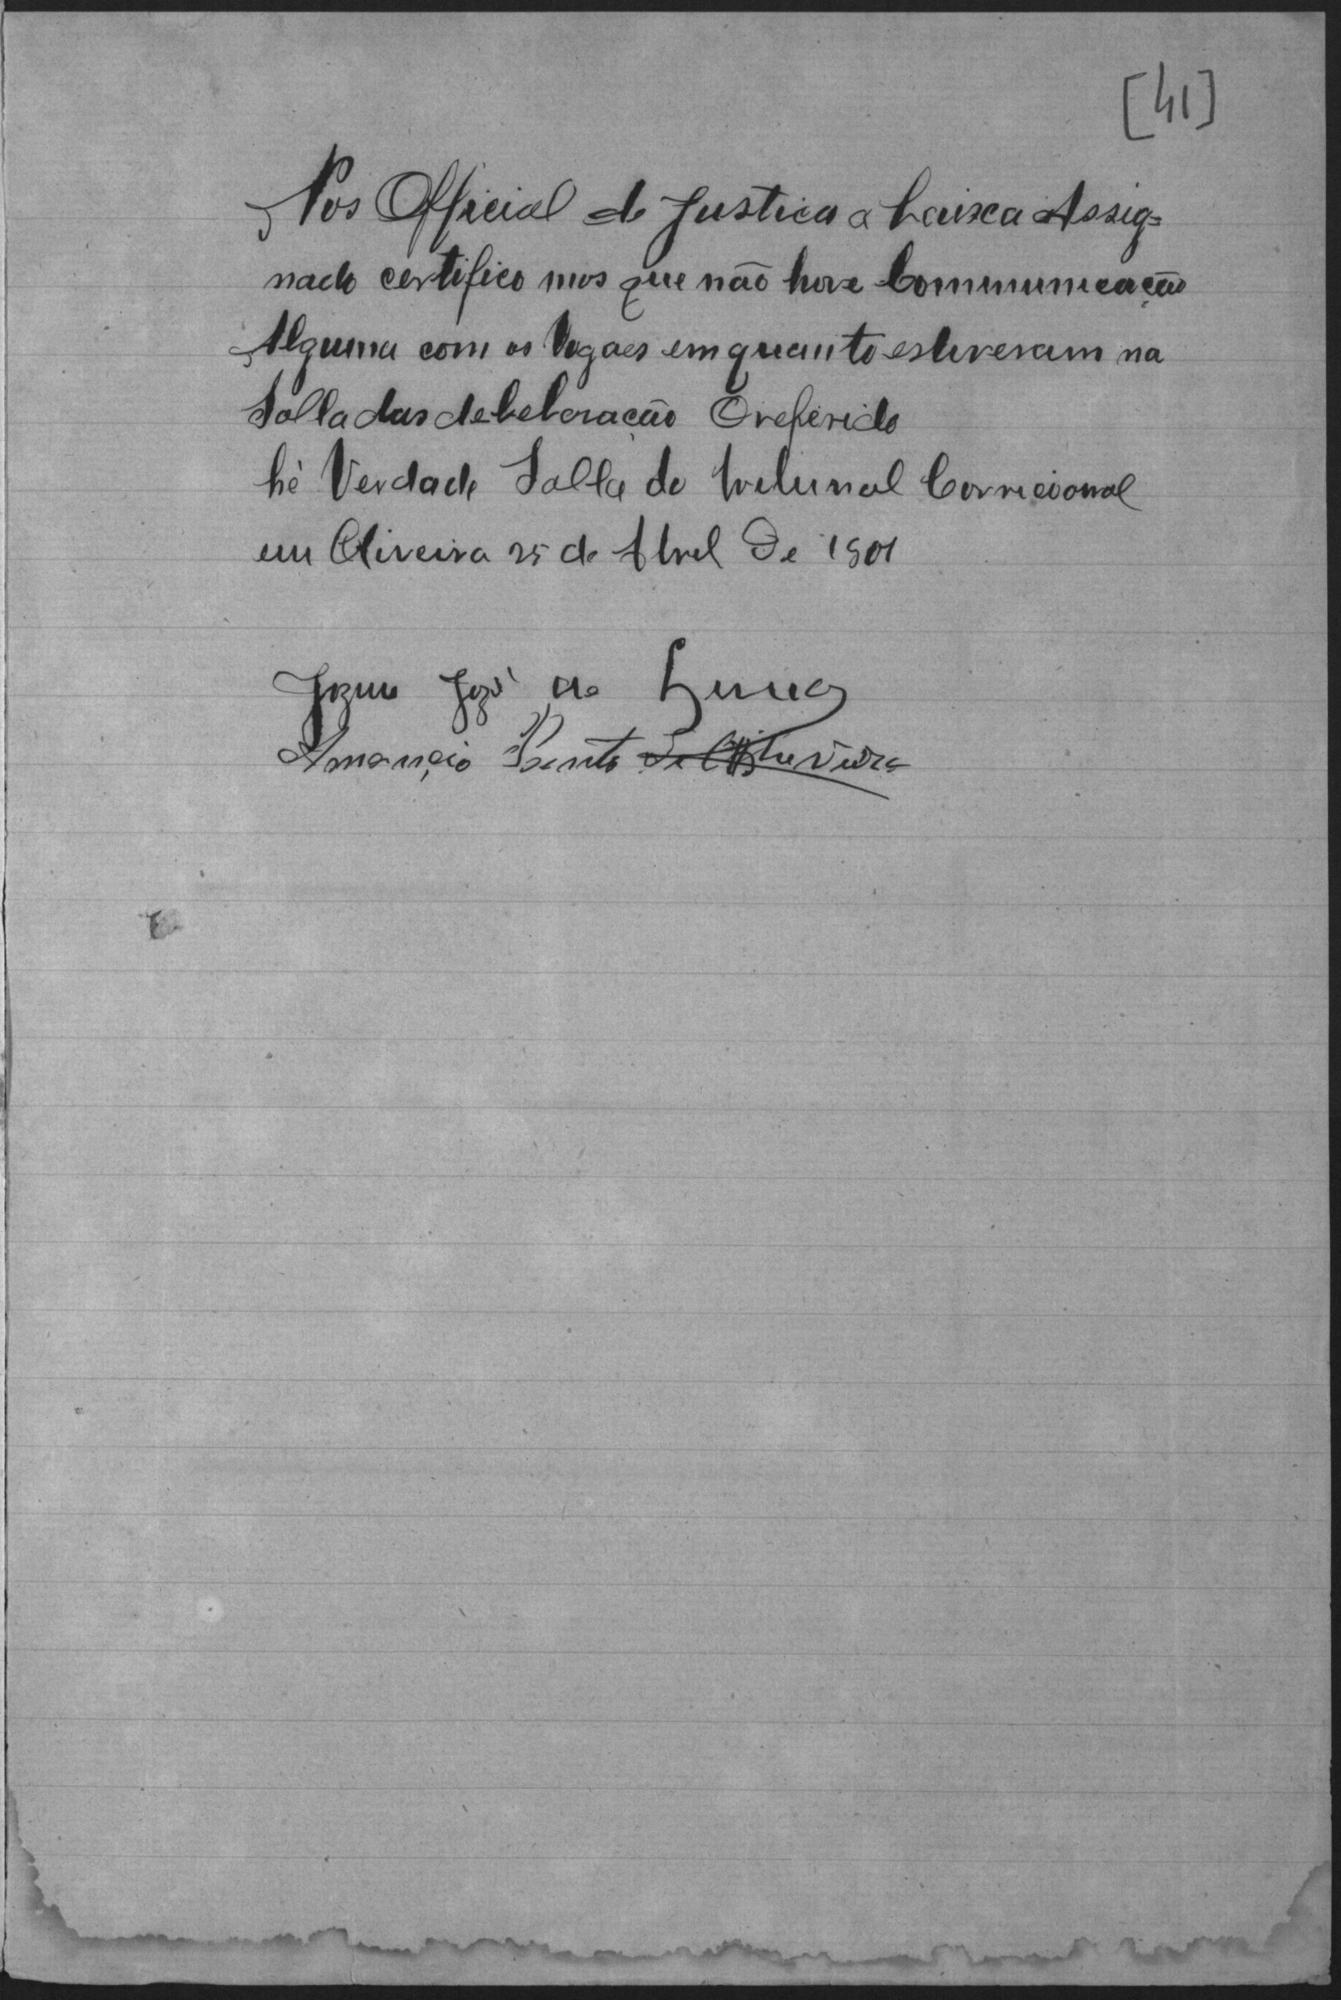 [41]
Nos Official de Justica a baixca Assig=
nado certifico mos que não hove Communicação
Alguma com os Vogaes em quanto estiveram na
Salla das debeberação O referido
hé Verdade Salla do tribunal Correcional
em Oliveira 25 de Abril De 1901
José de
Amancio Bento de Oliveira